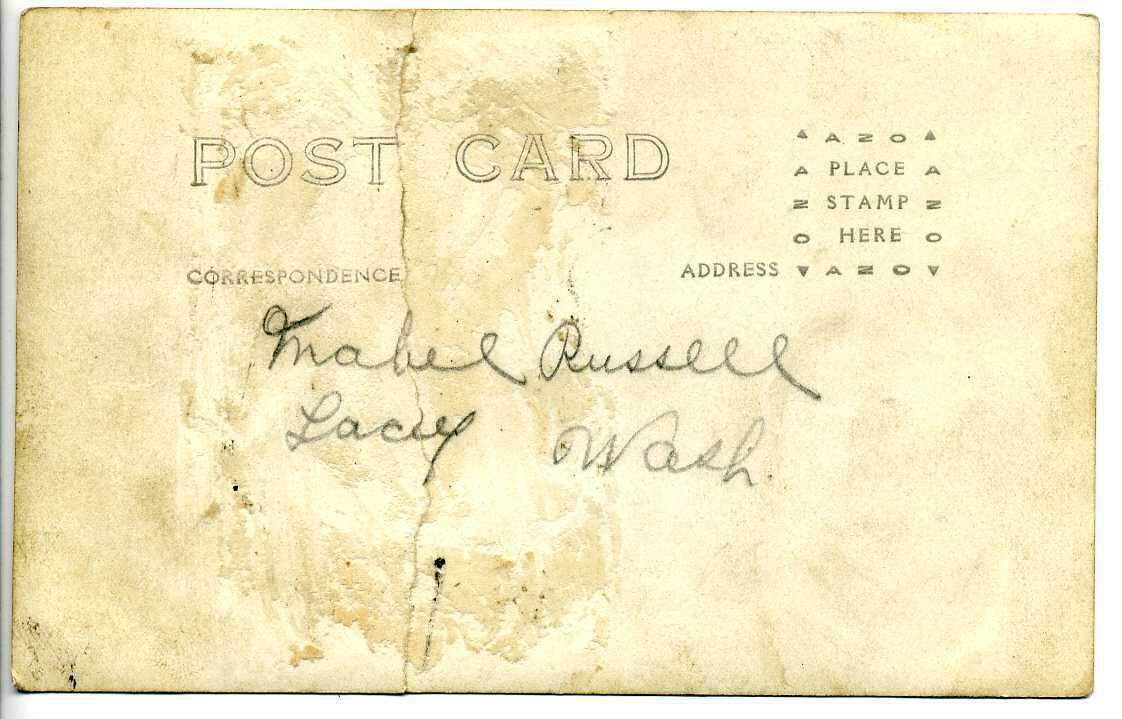 POST CARD
AZO
A PLACE A
Z STAMP Z
O HERE O
CORRESPONDENCE
ADDRESS
AZO
Mabel Russell
Lacey Wash.